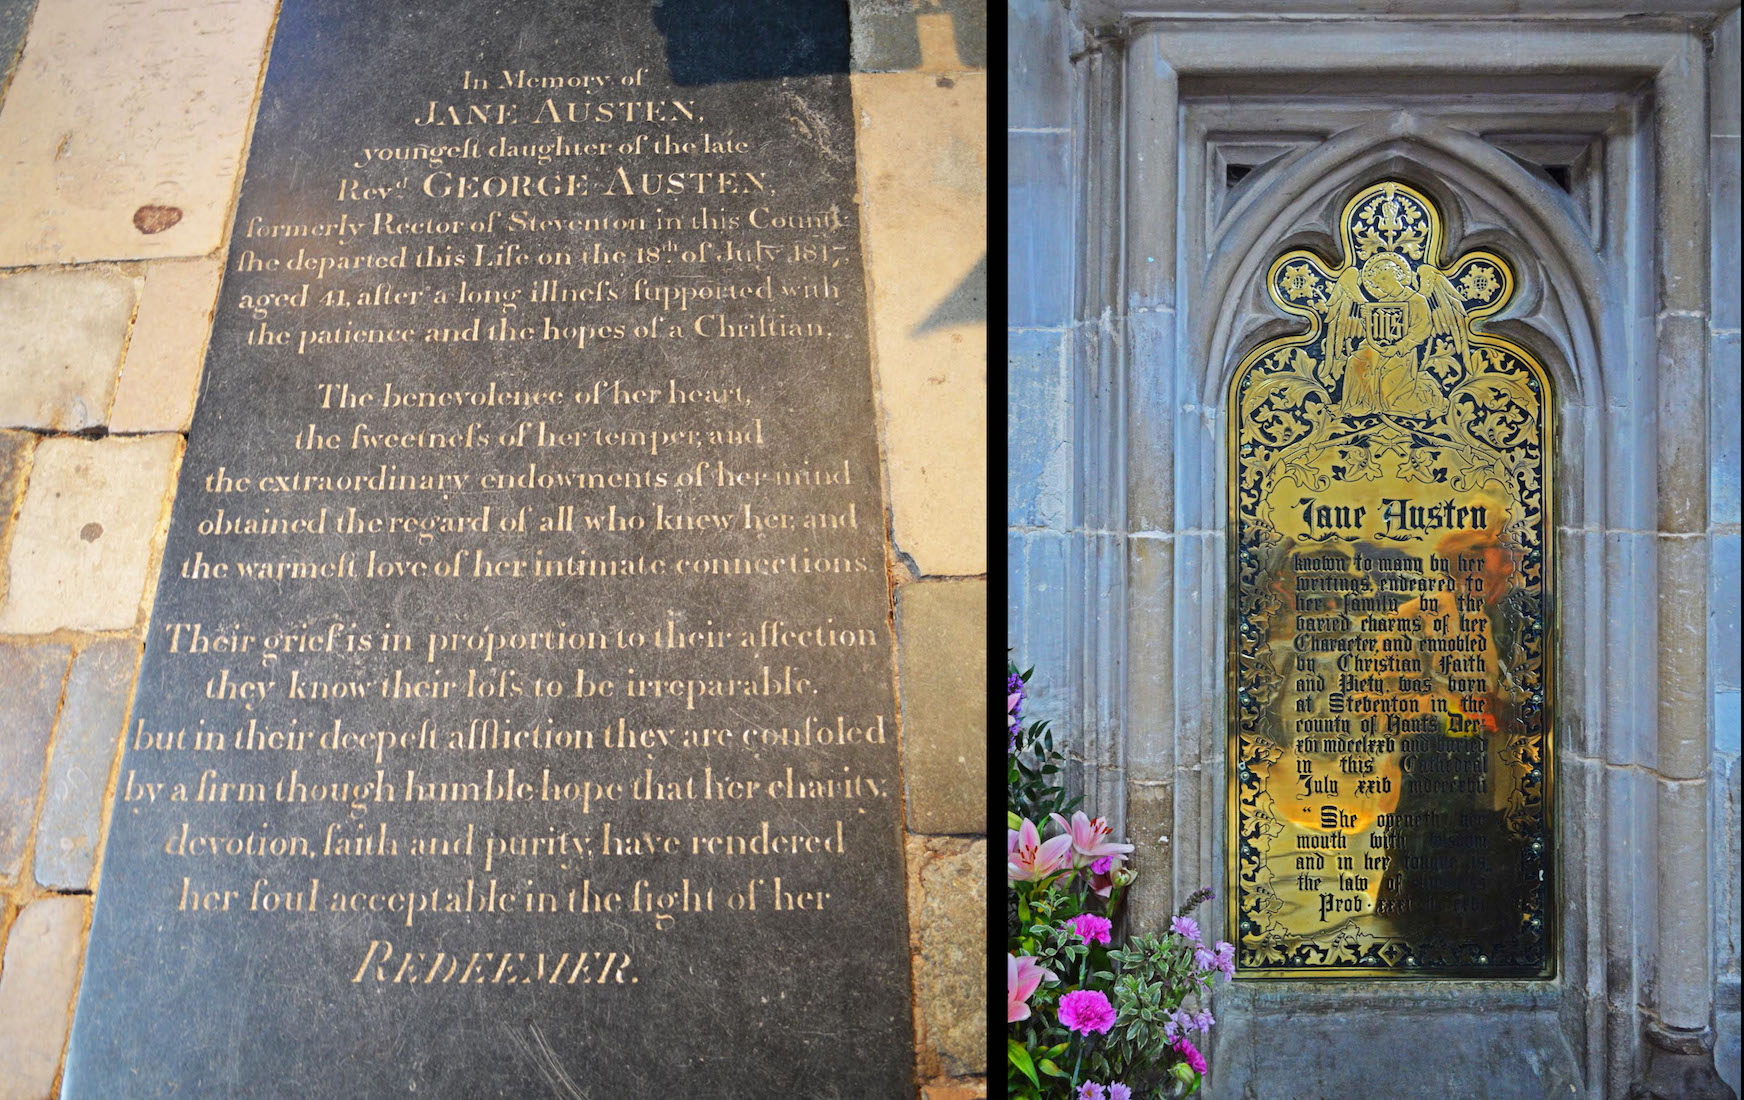 In Memory of
JANE AUSTEN,
youngeſt daughter of the late
Revᵈ GEORGE AUSTEN,
formerly Rector of Steventon in this County
ſhe departed this Life on the 18ᵗʰ of July 1817,
aged 41, after a long illneſs ſupported with
the patience and the hopes of a Chriſtian.
The benevolence of her heart,
the ſweetneſs of her temper, and
the extraordinary endowments of her mind
obtained the regard of all who knew her, and
the warmeſt love of her intimate connections.
Their grief is in proportion to their affection
they know their loſs to be irreparable,
but in their deepeſt affliction they are conſoled
by a firm though humble hope that her charity,
devotion, faith and purity, have rendered
her ſoul acceptable in the ſight of her
REDEEMER.
IHS
Jane Austen
known to many by her
writings, endeared to
her family by the
varied charms of her
Character, and ennobled
by Christian Faith
and Piety, was born
at Steventon in the
county of Hants Dec:
xvi mdcclxxv and buried
in this Cathedral
July xxiv mdcccxvii
"She openeth her
mouth with wisdom
and in her tongue is
the law of
Prov. xxxi.